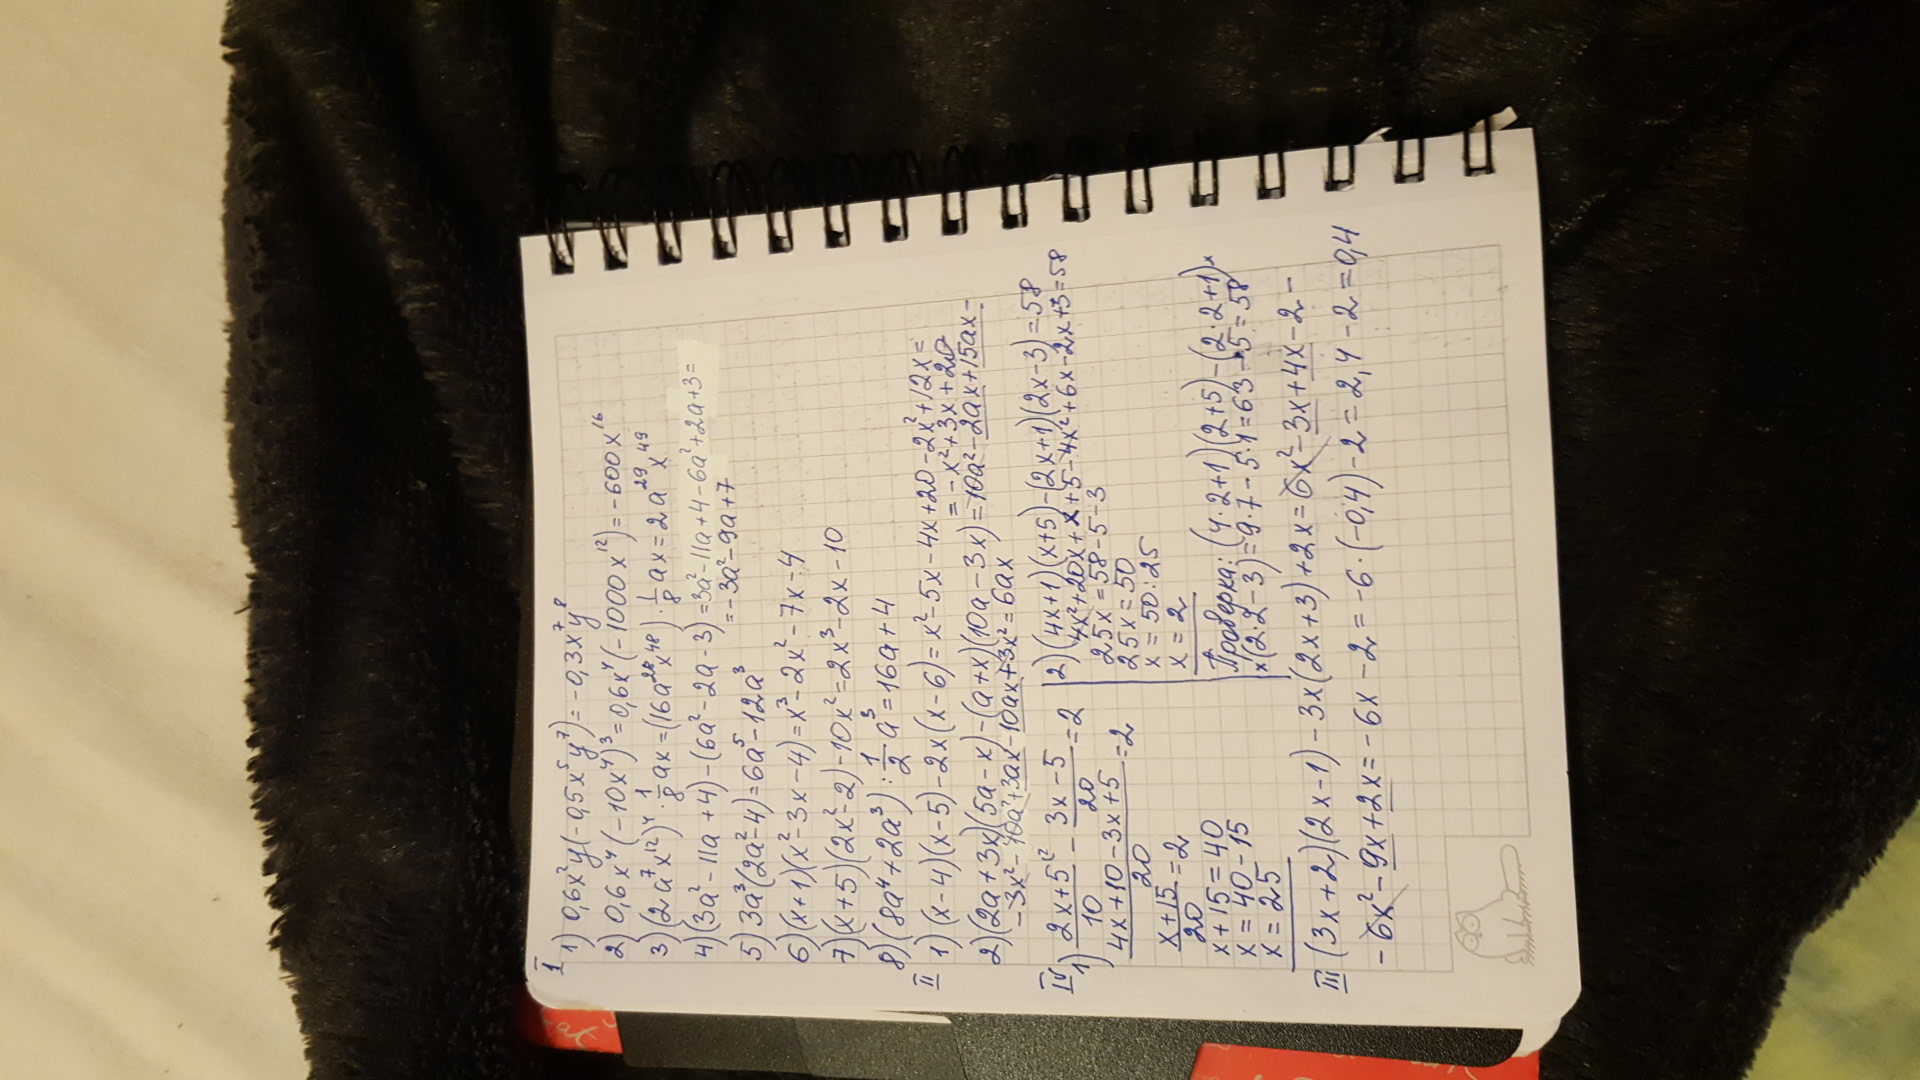 I
1) 0,6x²y(-0,5x⁵y⁷) = -0,3x⁷y⁸
2) 0,6x⁴(-10x⁴)³ = 0,6x⁴(-1000x¹²) = -600x¹⁶
3) (2a⁷x¹²)⁴ · 1/8 ax = (16a²⁸x⁴⁸) · 1/8 ax = 2a²⁹x⁴⁹
4) (3a² - 11a + 4) - (6a² - 2a - 3) = 3a² - 11a + 4 - 6a² + 2a + 3 =
= -3a² - 9a + 7
5) 3a³(2a² - 4) = 6a⁵ - 12a³
6) (x+1)(x² - 3x - 4) = x³ - 2x² - 7x - 4
7) (x+5)(2x² - 2) - 10x² = 2x³ - 2x - 10
8) (8a⁴ + 2a³) : 1/2 a³ = 16a + 4
II 1) (x-4)(x-5) - 2x(x-6) = x² - 5x - 4x + 20 - 2x² + 12x =
= -x² + 3x + 20
2) (2a+3x)(5a-x) - (a+x)(10a-3x) = 10a² - 2ax + 15ax -
-3x² - 10a² + 3ax - 10ax + 3x² = 6ax
IV
1) (2x+5)/10 - (3x-5)/20 = 2
(4x+10-3x+5)/20 = 2
(x+15)/20 = 2
x + 15 = 40
x = 40 - 15
x = 25
2) (4x+1)(x+5) - (2x+1)(2x-3) = 58
4x² + 20x + x + 5 - 4x² + 6x - 2x + 3 = 58
25x = 58 - 5 - 3
25x = 50
x = 50 : 25
x = 2
Проверка: (4·2+1)(2+5) - (2·2+1)×
×(2·2-3) = 9·7 - 5·1 = 63 - 5 = 58
III (3x+2)(2x-1) - 3x(2x+3) + 2x = 6x² - 3x + 4x - 2 -
- 6x² - 9x + 2x = -6x - 2 = -6·(-0,4) - 2 = 2,4 - 2 = 0,4